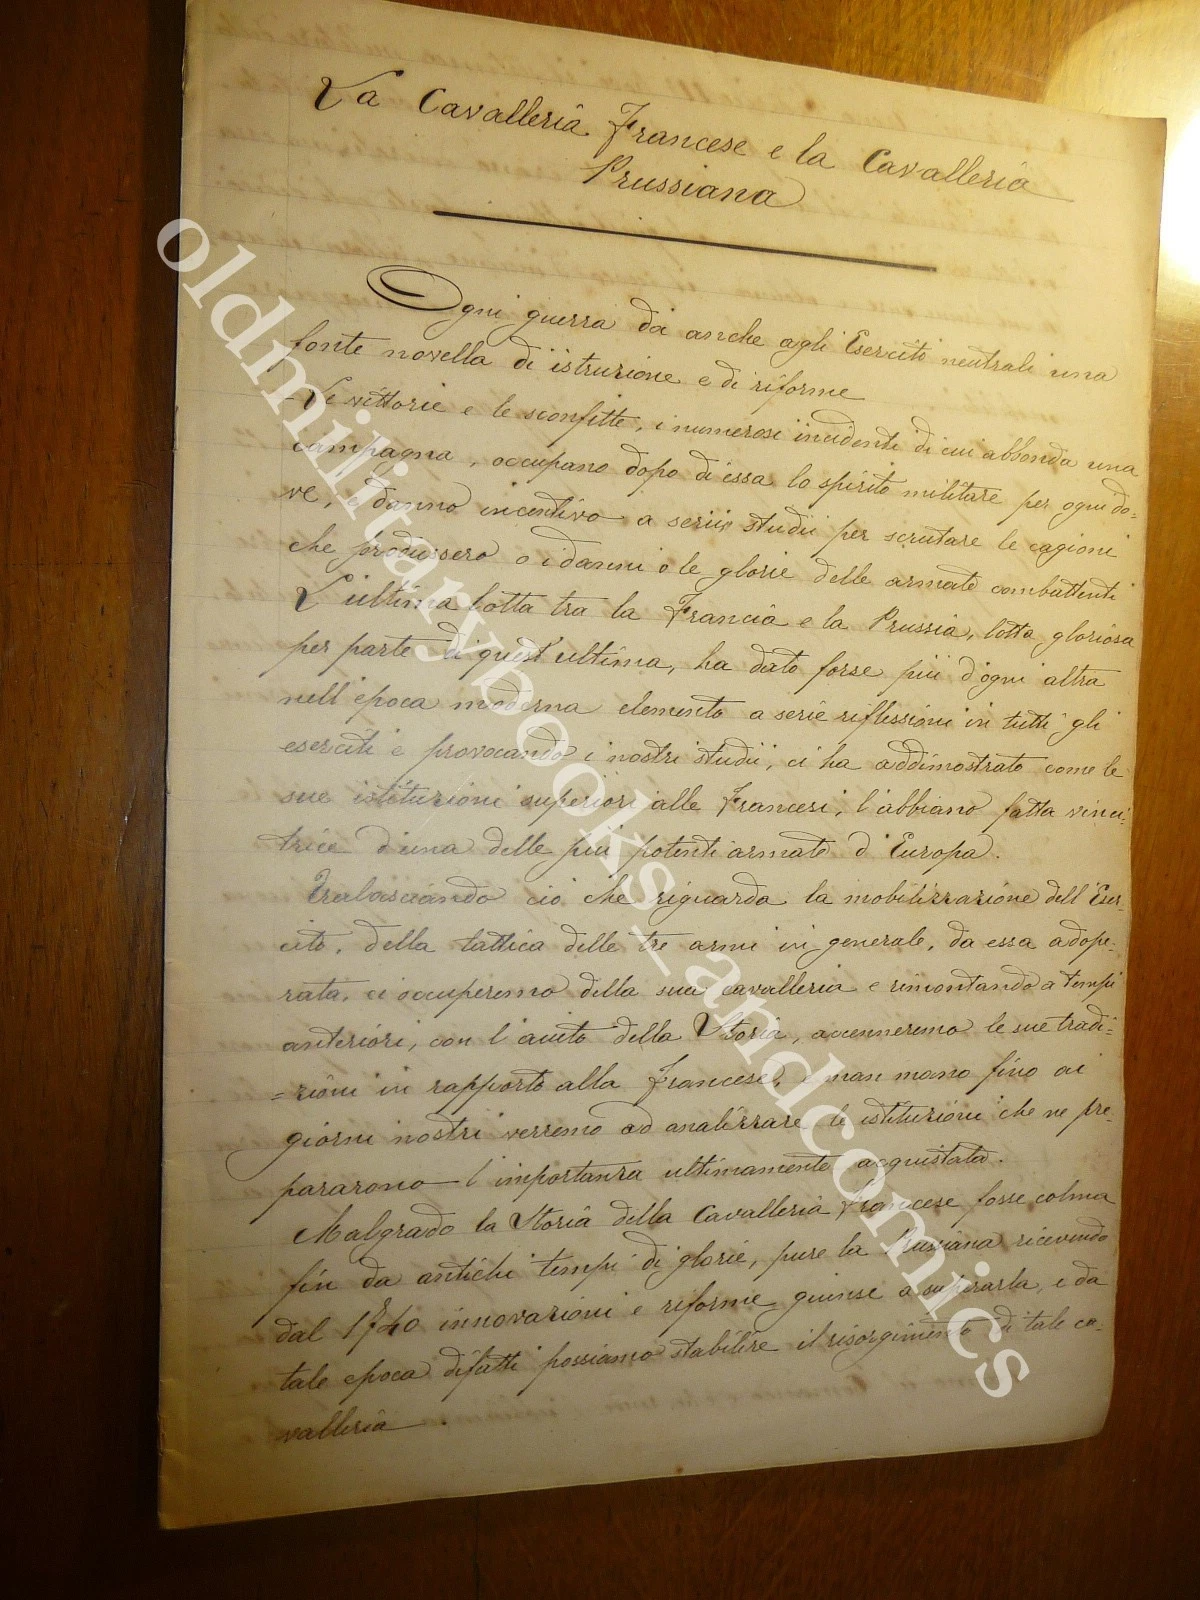 La Cavalleria Francese e la Cavalleria
Prussiana
Ogni guerra dà anche agli Eserciti neutrali una
fonte novella di istruzione e di riforme
Le vittorie e le sconfitte, i numerosi incidenti di cui abbonda una
campagna, occupano dopo di essa lo spirito militare per ogni do-
ve, e danno incentivo a serii studii per scrutare le cagioni
che produssero o i danni o le glorie delle armate combattenti
L'ultima lotta tra la Francia e la Prussia, lotta gloriosa
per parte di quest'ultima, ha dato forse più d'ogni altra
nell'epoca moderna elemento a serie riflessioni in tutti gli
eserciti e provocando i nostri studii, ci ha addimostrato come le
sue istituzioni superiori alle Francesi, l'abbiano fatta vinci-
trice d'una delle più potenti armate d'Europa.
Tralasciando ciò che riguarda la mobilizzazione dell'Eser-
cito, della tattica delle tre armi in generale, da essa adope-
rata, ci occuperemo della sua cavalleria e rimontando a tempi
anteriori, con l'aiuto della Storia, accenneremo le sue tradi-
=zioni in rapporto alla Francese, e man mano fino ai
giorni nostri verremo ad analizzare le istituzioni che ne pre-
pararono l'importanza ultimamente acquistata.
Malgrado la Storia della Cavalleria Francese fosse colma
fin da antichi tempi di glorie, pure la Prussiana ricevendo
dal 1740 innovazioni e riforme giunse a superarla, e da
tale epoca difatti possiamo stabilire il risorgimento di tale ca-
valleria.
oldmilitarybooks_andcomics